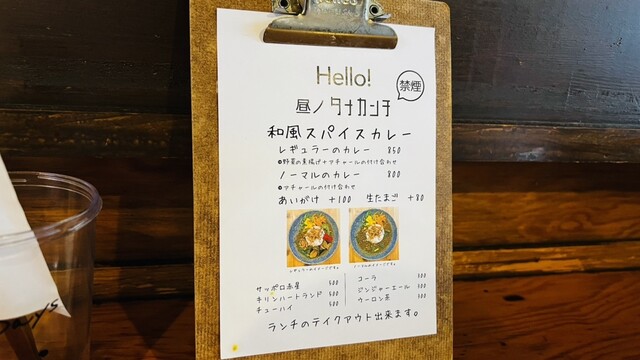 Hello!
禁煙
昼ノタナカンチ
和風スパイスカレー
レギュラーのカレー 850
●野菜の素揚げ+アチャールの付け合わせ
ノーマルのカレー 800
●アチャールの付け合わせ
あいがけ +100 生たまご +80
レギュラーのイメージです。
ノーマルのイメージです。
サッポロ赤星 500
キリンハートランド 500
チューハイ 400
コーラ 100
ジンジャーエール 100
ウーロン茶 100
ランチのテイクアウト出来ます。